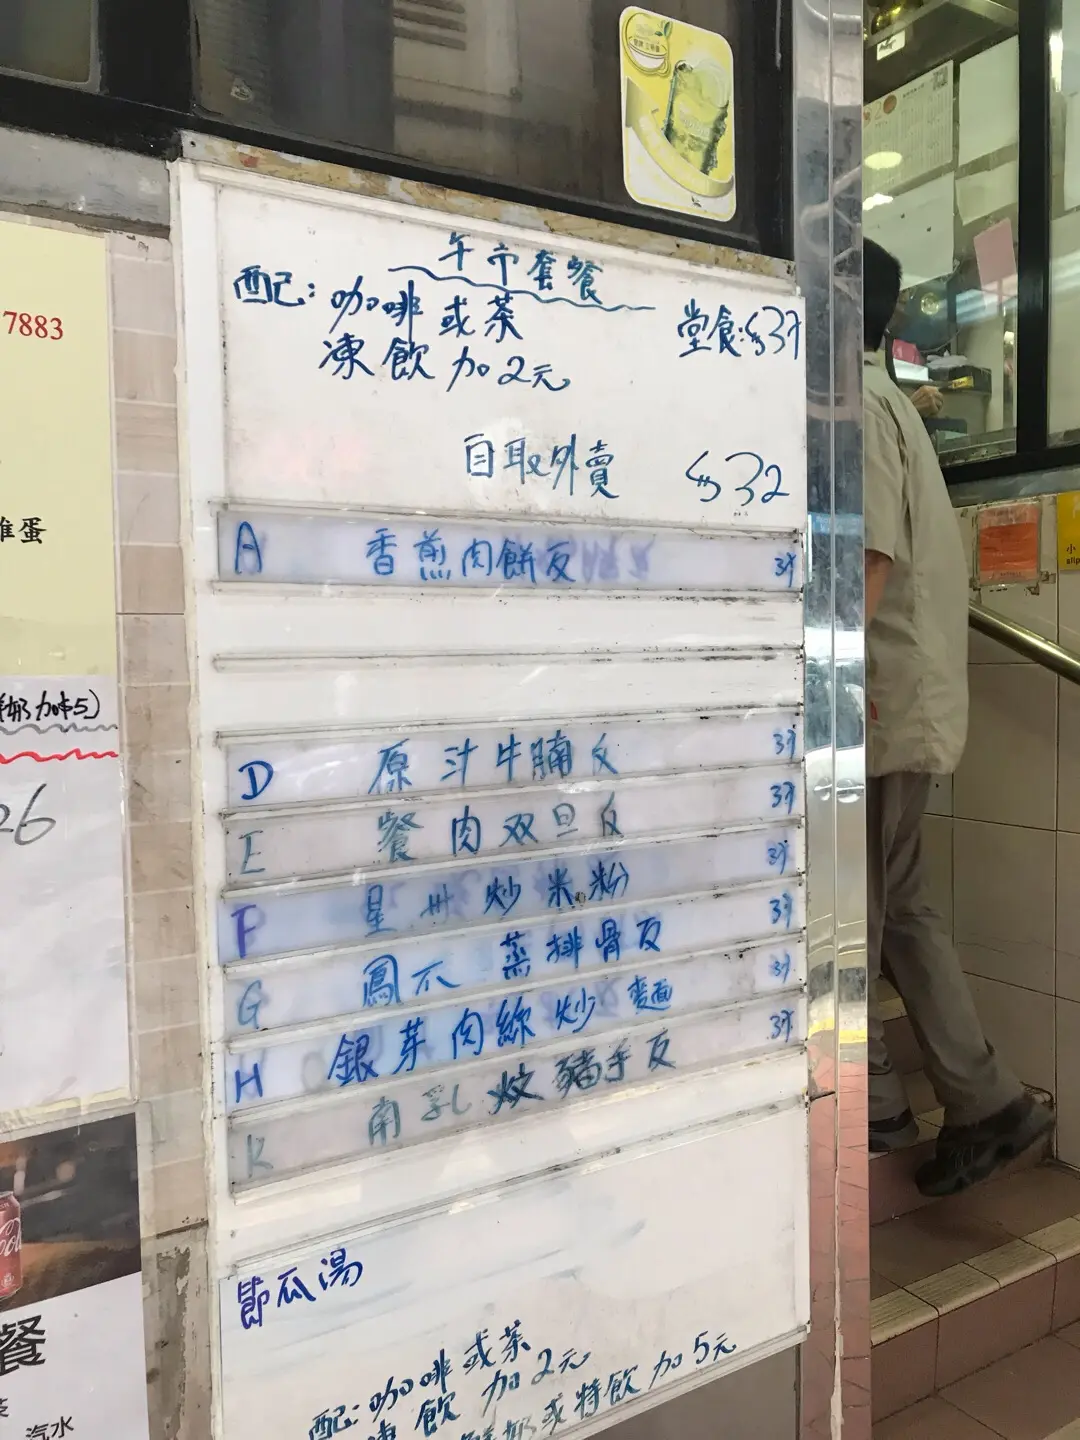 午市套餐
配：咖啡或茶
凍飲加2元
堂食：$37
自取外賣 $32
A 香煎肉餅反 37
D 原汁牛腩反 37
E 餐肉双旦反 37
F 星州炒米粉 37
G 鳳爪蒸排骨反 37
H 銀芽肉絲炒麵 37
K 南乳炆豬手反 37
節瓜湯
配：咖啡或茶
凍飲加2元
鮮奶或特飲加5元
7883
雞蛋
奶加$5)
26
餐
汽水
小
slip